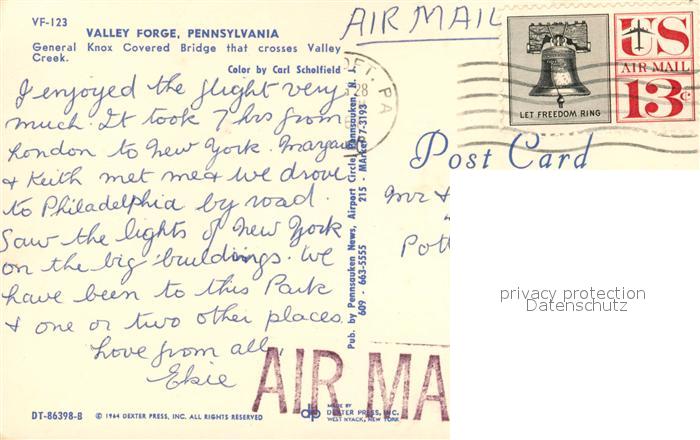 VF-123
VALLEY FORGE, PENNSYLVANIA
General Knox Covered Bridge that crosses Valley
Creek.
Color by Carl Scholfield
I enjoyed the flight very
much. It took 7 hrs from
London to New York.
& Keith met me & we drove
to Philadelphia by road.
Saw the lights of New York
on the big buildings. We
have been to this Park
& one or two other places.
Love from all,
Elsie
DT-86398-B
© 1964 DEXTER PRESS, INC. ALL RIGHTS RESERVED
Pub. by Pennsauken News, Airport Circle, Pennsauken, N. J.
609 - 663-5555 215 - MArket 7-3193
AIR MAIL
PA
28
LET FREEDOM RING
US
AIR MAIL
13c
Post Card
Mr &
Pott
privacy protection
Datenschutz
AIR MA
dp
MADE BY
DEXTER PRESS, INC.
WEST NYACK, NEW YORK